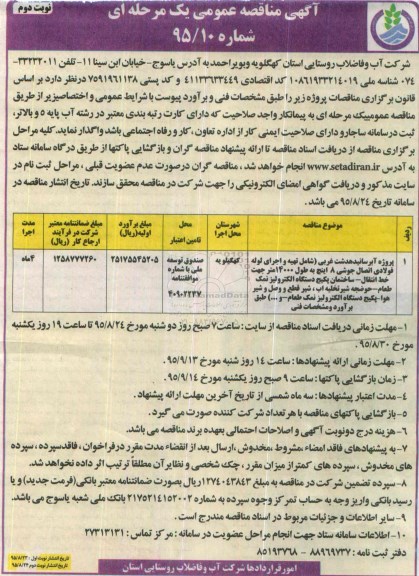 نوبت دوم
آگهی مناقصه عمومی یک مرحله ای
شماره ۹۵/۱۰
شرکت آب وفاضلاب روستایی استان کهگلویه وبویراحمد به آدرس یاسوج-خیابان ابن سینا۱۱-تلفن ۳۳۲۳۲۰۱۱-
۰۷۴ شناسه ملی ۱۰۸۶۱۹۳۳۲۱۴۰۱۹ کد اقتصادی ۴۱۱۳۳۶۳۳۴۴۹ و کد پستی ۷۵۹۱۹۶۱۱۳۸ درنظر دارد بر اساس
قانون برگزاری مناقصات پروژه زیر را طبق مشخصات فنی و برآورد پیوست با شرایط عمومی و اختصاصیزیر از طریق
مناقصه عمومییک مرحله ای به پیمانکار واجد صلاحیت که دارای کارت رتبه بندی معتبر در رشته آب پایه ۵ و بالاتر،
ثبت درسامانه ساجارو دارای صلاحیت ایمنی کار از اداره تعاون ،کار و رفاه اجتماعی باشد واگذار نماید. کلیه مراحل
برگزاری مناقصه از دریافت اسناد مناقصه تا ارائه پیشنهاد مناقصه گران و بازگشایی پاکتها از طریق درگاه سامانه ستاد
به آدرس www.setadiran.ir انجام خواهد شد ، مناقصه گران درصورت عدم عضویت قبلی ، مراحل ثبت نام در
سایت مذکور و دریافت گواهی امضای الکترونیکی را جهت شرکت در مناقصه محقق سازند. تاریخ انتشار مناقصه در
سامانه تاریخ ۹۵/۸/۲۴ می باشد.
ردیف | موضوع مناقصه | شهرستان محل اجرا | محل تامین اعتبار | مبلغ برآورد اولیه(ریال) | مبلغ ضمانتنامه معتبر شرکت در فرآیند ارجاع کار (ریال) | مدت اجرا
۱ | پروژه آبرسانیدهدشت غربی (شامل تهیه و اجرای لوله فولادی اتصال جوشی ۸ اینچ به طول ۱۲۰۰۰متر جهت خط انتقال– ساختمان پکیج دستگاه الکترولیز نمک طعام–حوضچه شیرتخلیه اب ، شیر قطع و وصل و شیر هوا-پکیج دستگاه الکترولیز نمک طعام–و ...) طبق برآورد ومشخصات فنی | کهگیلویه | صندوق توسعه ملی با شماره موافقتنامه ۴۰۹۰۲۲۳۷ | ۲۵۱۷۵۵۴۵۲۰۵ | ۱۲۵۸۷۷۷۲۶۰ | ۴ماه
۱- مهلت زمانی دریافت اسناد مناقصه از سایت : ساعت۷ صبح روز دو شنبه مورخ ۹۵/۸/۲۴ تا ساعت ۱۹ روز یکشنبه
مورخ ۹۵/۸/۳۰.
۲- مهلت زمانی ارائه پیشنهادها : ساعت ۱۴ روز شنبه مورخ ۹۵/۹/۱۳.
۳- زمان بازگشایی پاکتها : ساعت ۹ صبح روز یکشنبه مورخ ۹۵/۹/۱۴.
۴-مدت اعتبار پیشنهادها : سه ماه شمسی از تاریخ آخرین مهلت ارائه پیشنهاد.
۵- بازگشایی پاکتهای مناقصه با هر تعداد شرکت کننده صورت می گیرد.
۶- هزینه درج دونوبت آگهی و اصلاحات احتمالی بعهده برنده مناقصه می باشد.
۷- به پیشنهادهای فاقد امضاء ,مشروط, مخدوش ,ارسال بعد از انقضاء مدت مقرر درفراخوان ، فاقدسپرده ، سپرده
های مخدوش ، سپرده های کمتراز میزان مقرر ، چک شخصی و نظایر آن مطلقاً ترتیب اثر داده نخواهد شد.
۸- سپرده تضمین شرکت در مناقصه به مبلغ ۱۲۷۴۰۴۳۸۴۳ریال بصورت ضمانتنامه معتبر بانکی(فرمت جدید) و یا
رسید بانکی واریز وجه به حساب تمرکز وجوه سپرده به شماره ۲۱۷۵۲۱۴۱۵۲۰۰۲ بانک ملی شعبه یاسوج می باشد.
۹- سایر اطلاعات و جزئیات مربوط در اسناد مناقصه مندرج است.
۱۰- اطلاعات سامانه ستاد جهت انجام مراحل عضویت در سامانه : مرکز تماس : ۲۷۳۱۳۱۳۱
دفتر ثبت نامه : ۸۸۹۶۹۷۳۷ – ۸۵۱۹۳۷۶۸
تاریخ انتشار نوبت اول: ۹۵/۸/۲۳
تاریخ انتشار نوبت دوم: ۹۵/۸/۲۴
امورقراردادها شرکت آب وفاضلاب روستایی استان